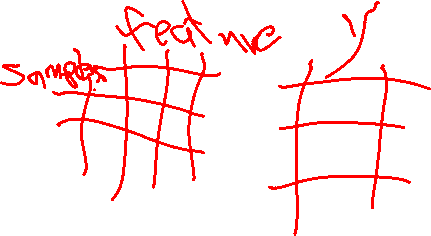 feature
samples
Y